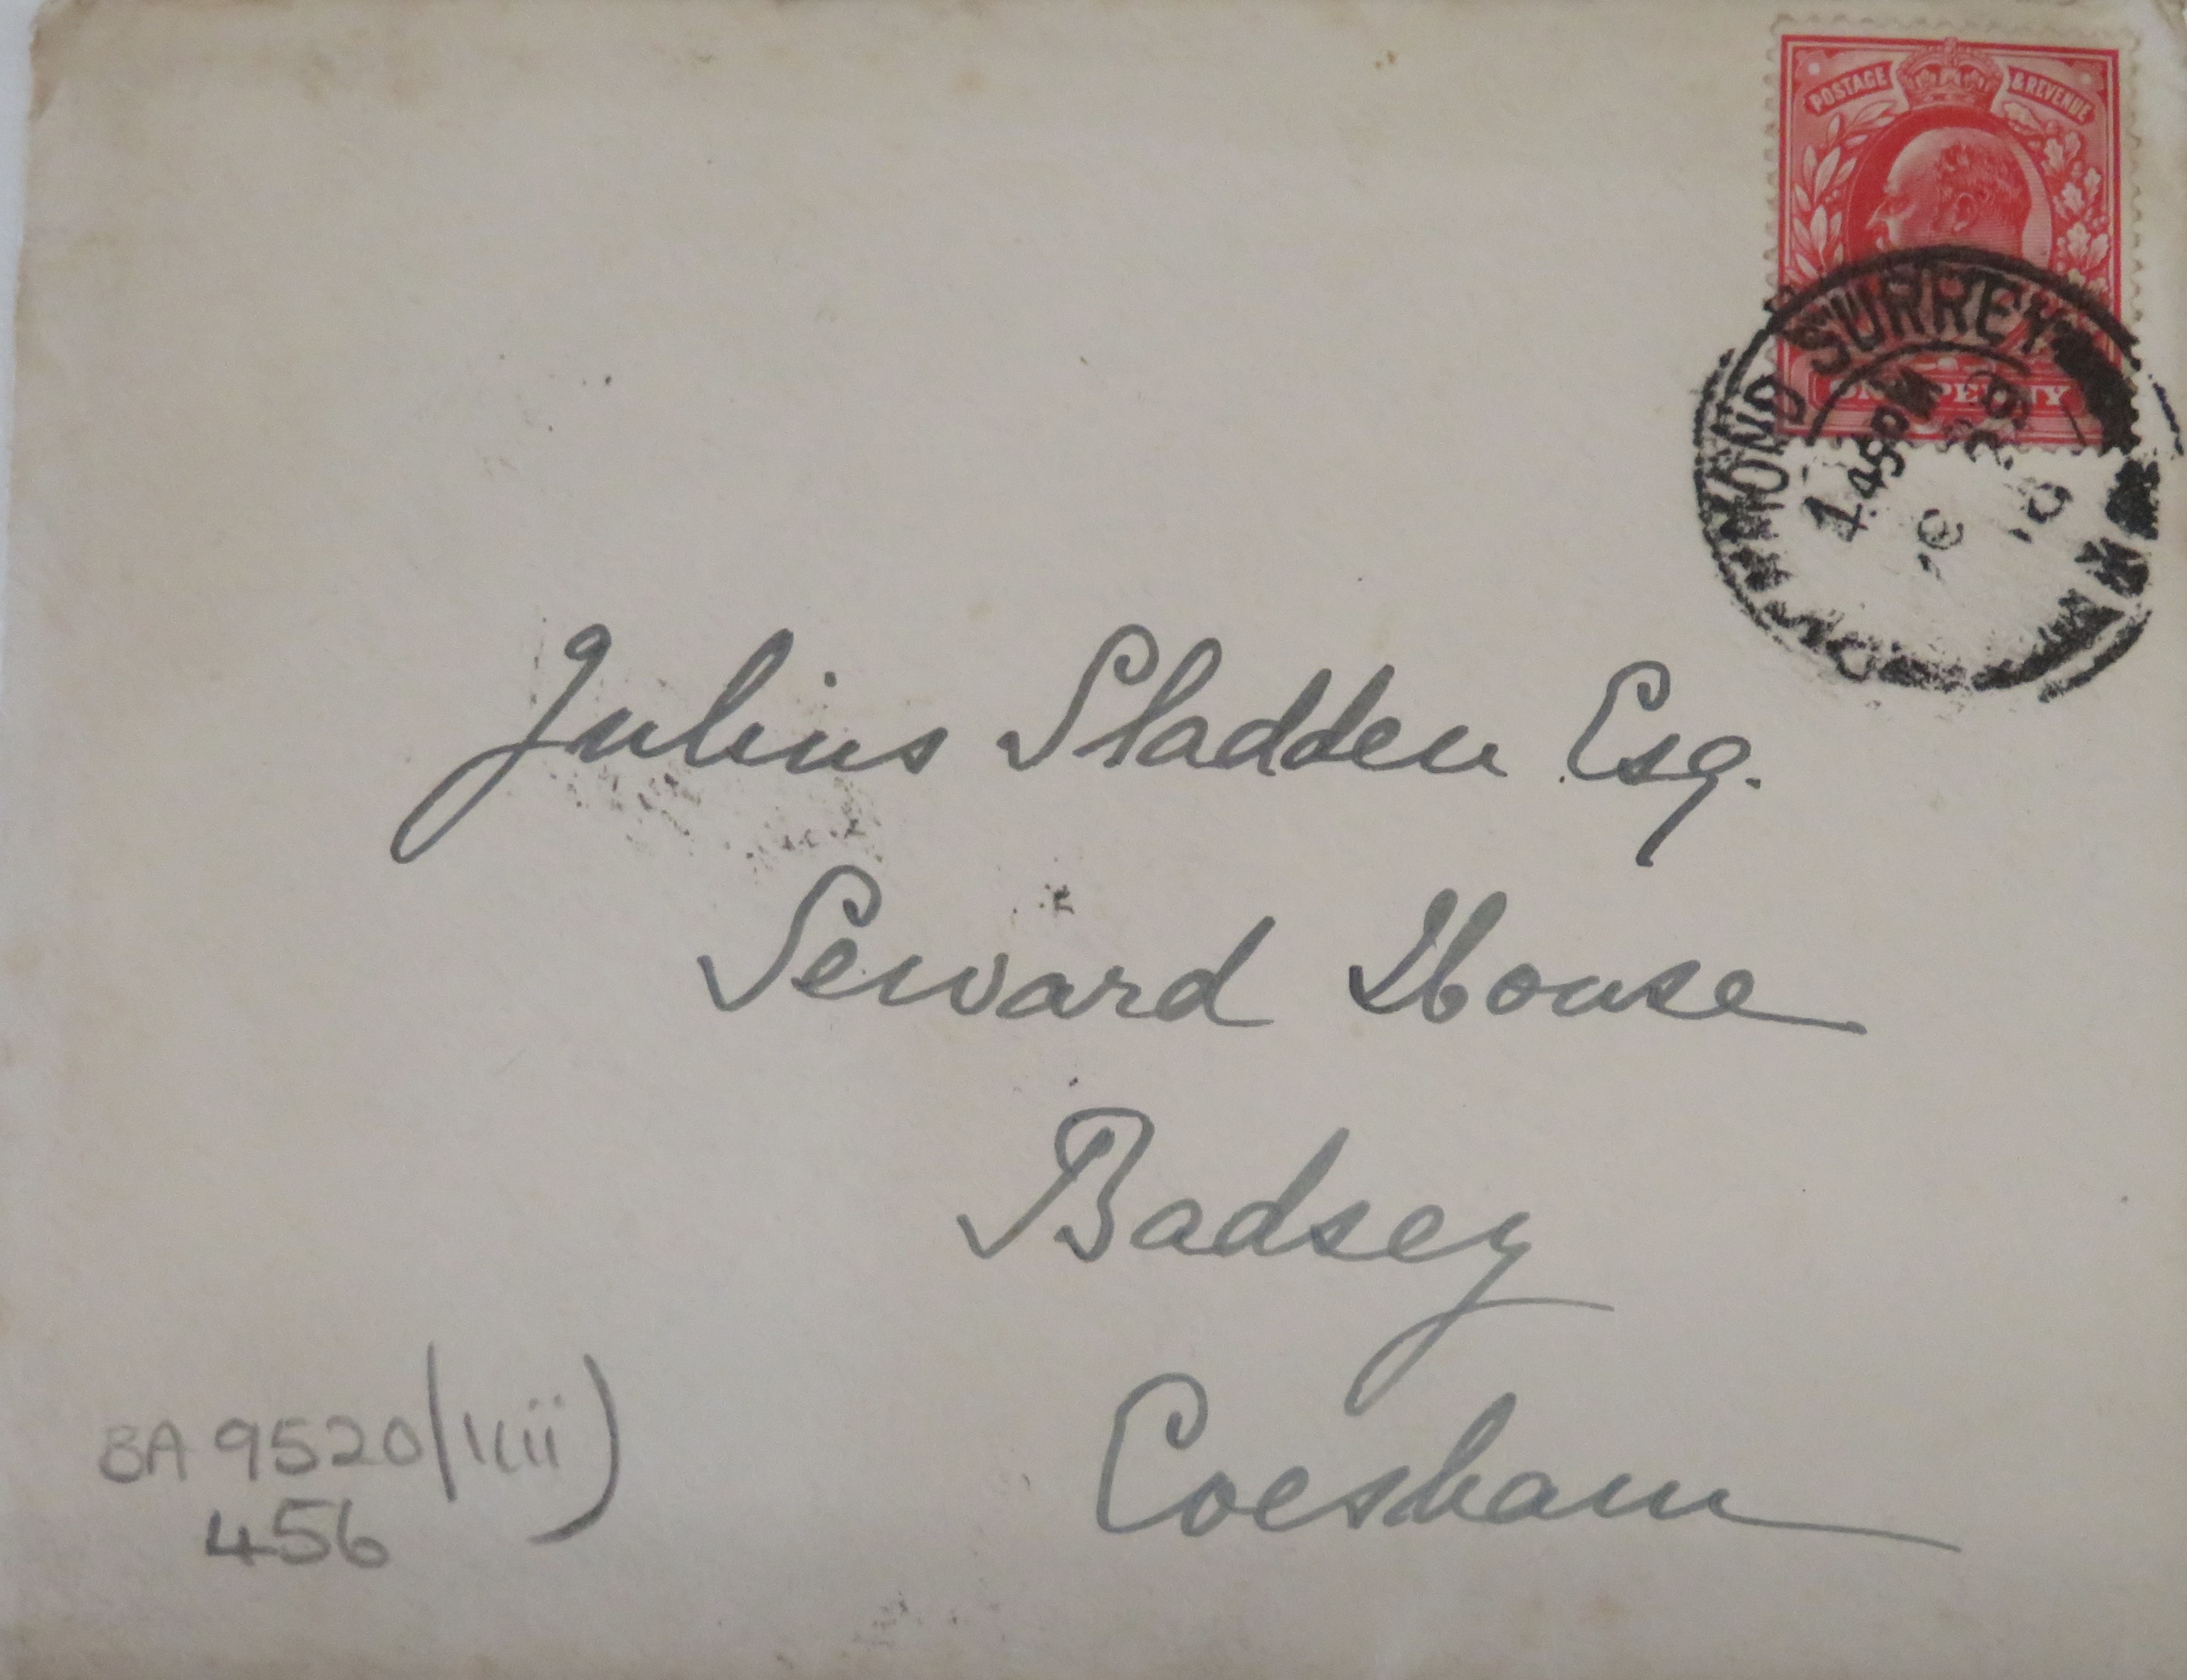 POSTAGE & REVENUE
ONE PENNY
MOND SURREY
1.45PM
10
Julius Sladden Esq.
Seward House
Badsey
Evesham
BA 9520/1(iii)
456